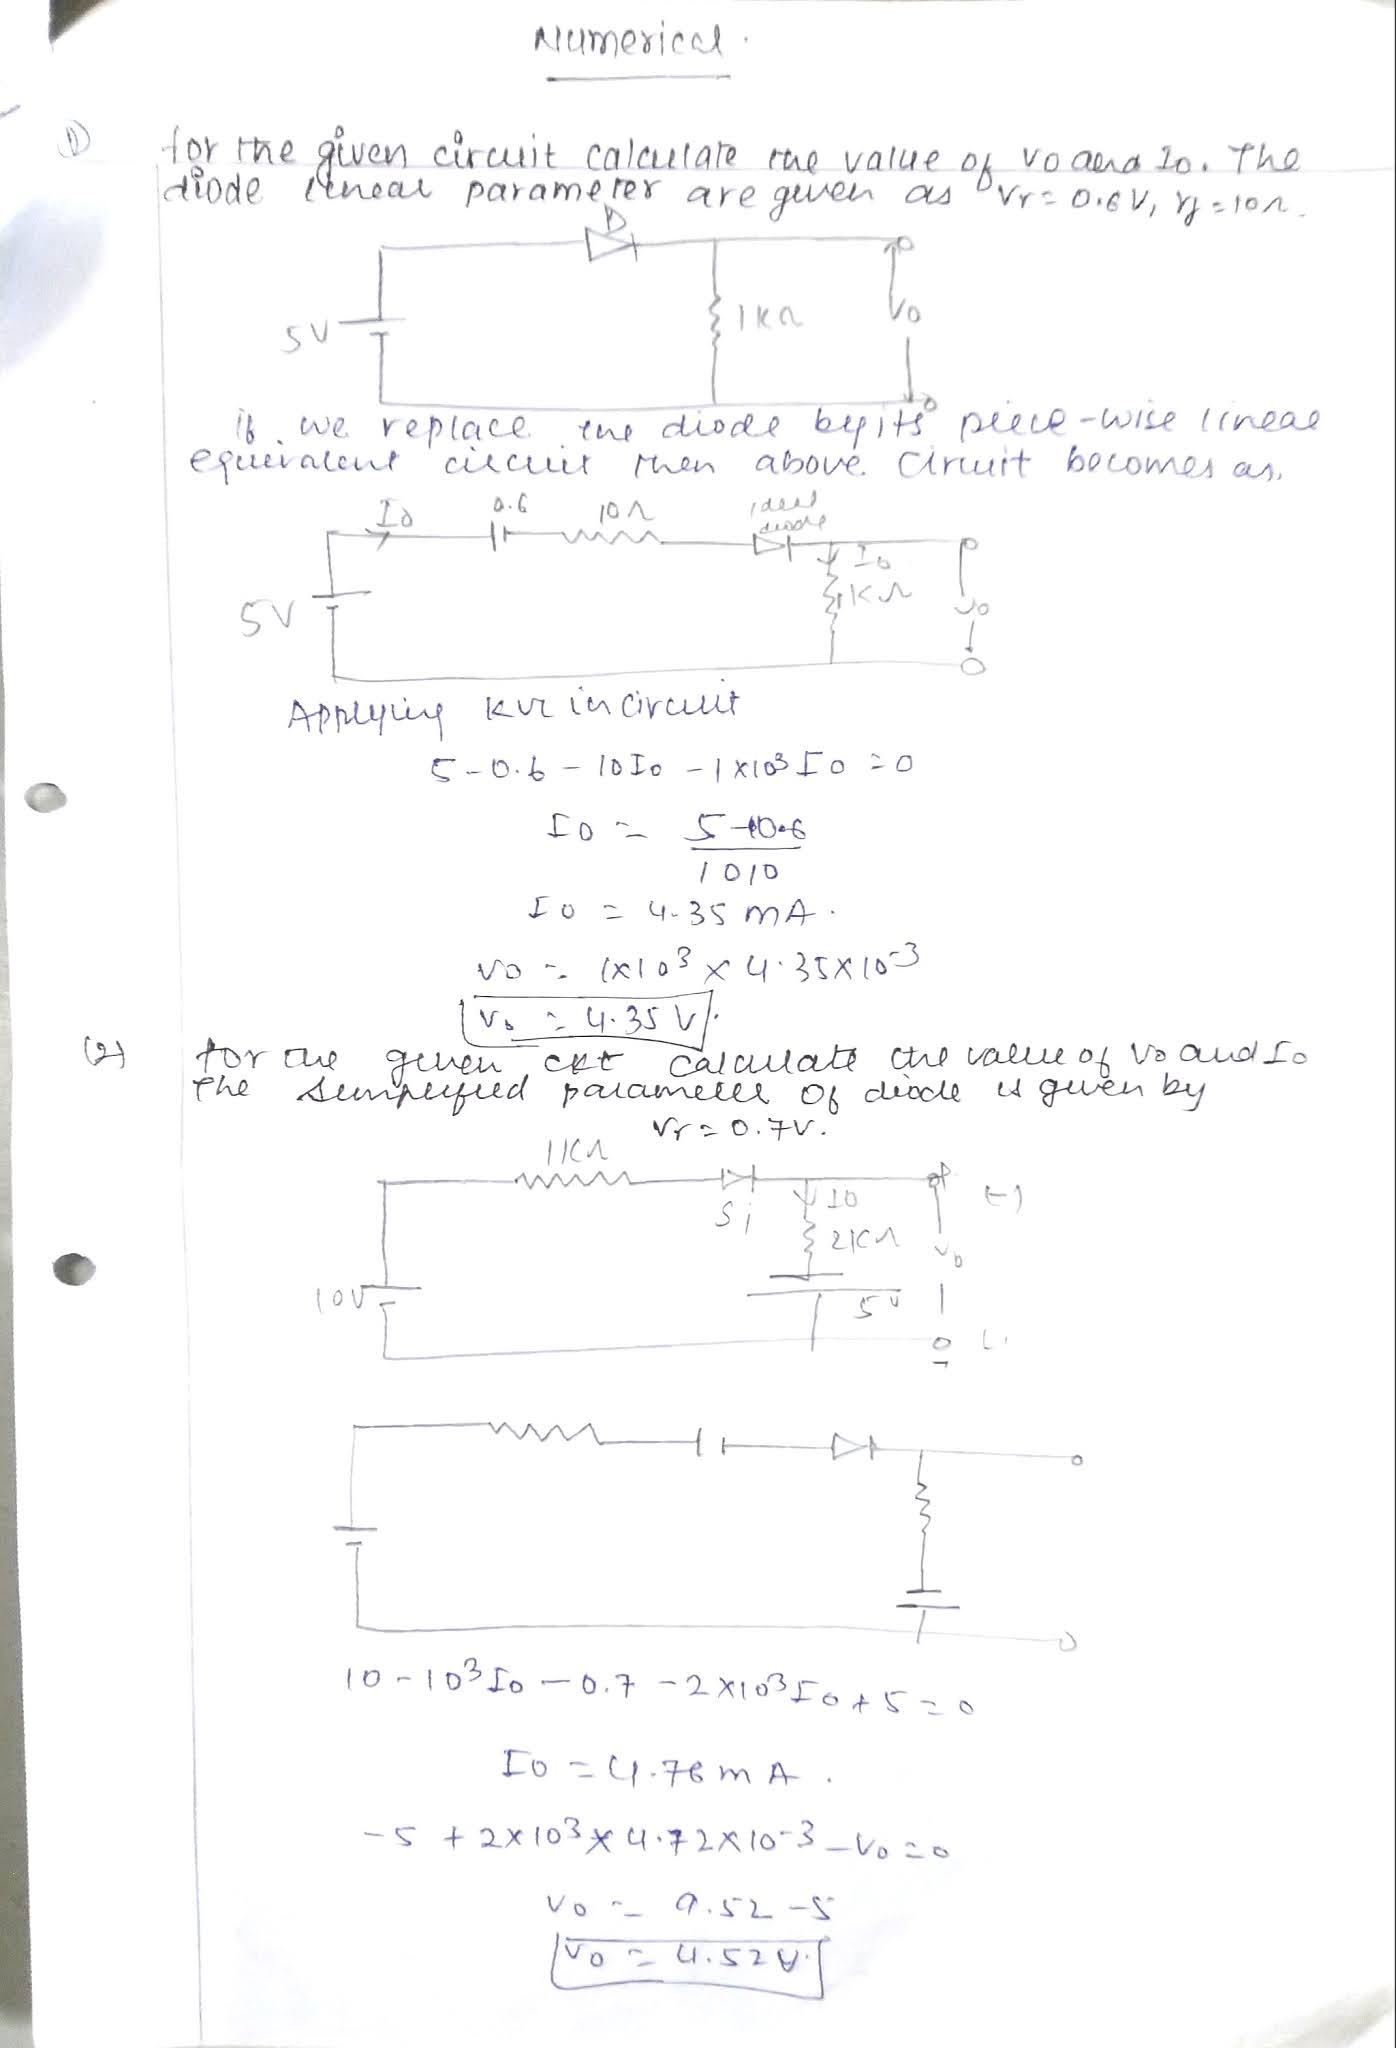 Numerical.
(1) for the given circuit calculate the value of vo and Io. The
diode linear parameter are given as Vr = 0.6V, rf = 10Ω.
D
5V
1KΩ
Vo
if we replace the diode by its piece-wise linear
equivalent circuit then above circuit becomes as,
Io
0.6
10Ω
ideal
diode
Io
1KΩ
5V
Vo
Applying KVL in circuit
5 - 0.6 - 10Io - 1×10³ Io = 0
Io = 5-0.6
1010
Io = 4.35 mA.
vo = 1×10³ × 4.35×10⁻³
Vo = 4.35 V.
(2) for the given ckt calculate the value of Vo and Io
The simplified parameter of diode is given by
Vr = 0.7V.
1KΩ
Si
Io
2KΩ
Vo
10V
5V
10 - 10³ Io - 0.7 - 2×10³ Io + 5 = 0
Io = 4.76 mA.
-5 + 2×10³ × 4.72×10⁻³ - Vo = 0
Vo = 9.52 - 5
Vo = 4.52V.